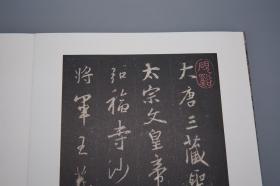 大唐三藏聖
太宗文皇帝
弘福寺沙
將軍王